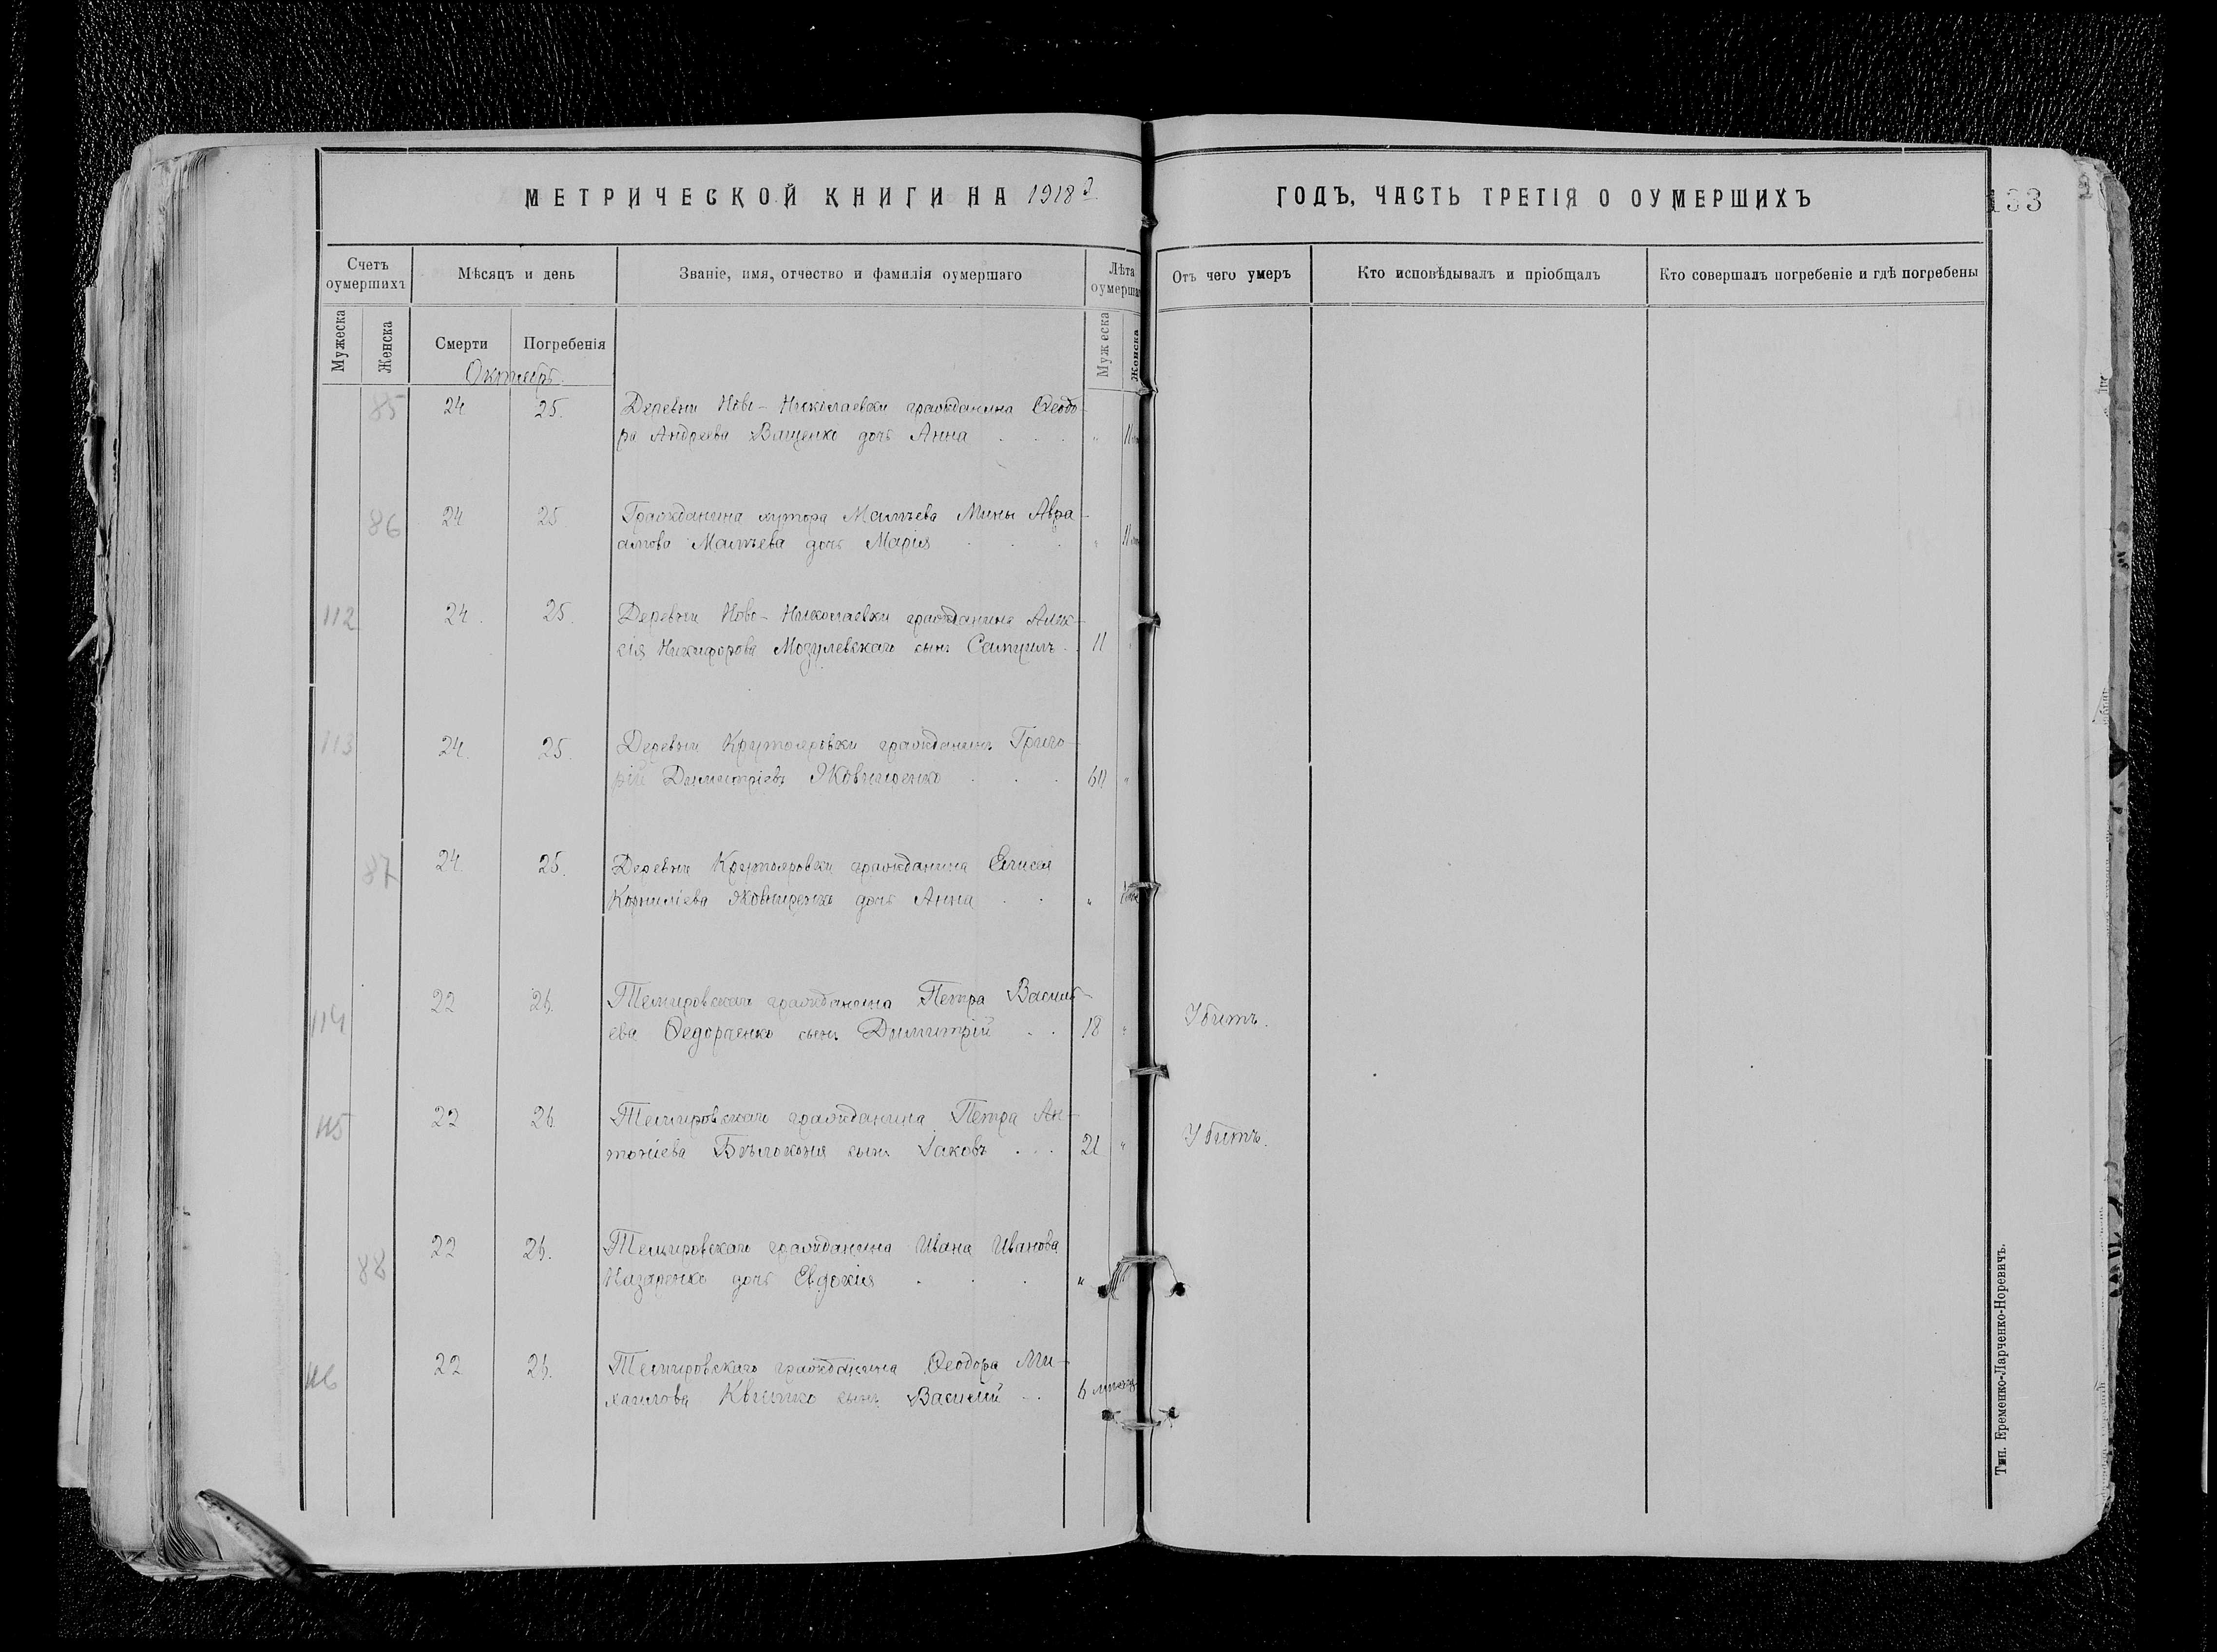 МЕТРИЧЕСКОЙ КНИГИ НА 1918
ГОДЪ, ЧАСТЬ ТРЕТІЯ О ОУМЕРШИХЪ
133
Счетъ оумершихъ
Мѣсяцъ и день
Званіе, имя, отчество и фамилія оумершаго
Лѣта
Отъ чего умеръ
Кто исповѣдывалъ и пріобщалъ
Кто совершалъ погребеніе и гдѣ погребены
Мужеска
Женска
Смерти
Погребенія
Мужеска
Женска
Октябрь.
85 24. 25. Деревни Ново-Николаевки гражданина Ѳеодо-
ра Андреева Ващенко дочь Анна . . . " 11
86 24 25 Гражданина хутора Матѣева Мины Авра-
амова Матѣева дочь Марія . . . " 11
112 24. 25. Деревни Ново-Николаевки гражданина Алек-
сія Никифорова Мозулевскаго сынъ Самуилъ . . 11
113 24. 25. Деревни Крутояровки гражданинъ Григо-
рій Димитріевъ Яковниренко . . . 60 "
87 24. 25. Деревни Крутояровки гражданина Елисея
Корниліева Яковниренко дочь Анна . . "
114 22 26. Темировскаго гражданина Петра Василь-
ева Ѳедорченко сынъ Димитрій . . 18 " Убитъ.
115 22 26. Темировскаго гражданина Петра Ан-
тоніева Бѣлоконя сынъ Іаковъ . . . 21 " Убитъ.
88 22 26. Темировскаго гражданина Ивана Иванова
Назаренко дочь Евдокія . . . "
116 22 26. Темировскаго гражданина Ѳеодора Ми-
хаилова Квитко сынъ Василій . . 6 мѣсяц.
Тип. Еременко-Ларченко-Норевичъ.